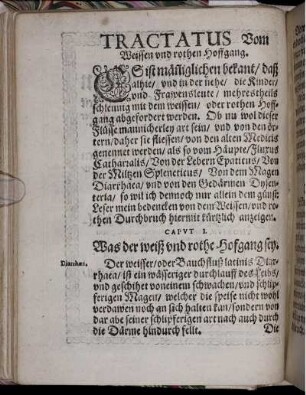 TRACTATUS Vom
Weissen vnd rothen Hoffgang.
ES ist mäñiglichen bekant / daß
vnd in der nehe / die Kinder /
vnd Frawensleute / mehrestheils
schleunig mit dem weissen / oder rothen Hoff-
gang abgefordert werden. Ob nu wol dieser
Flüsse mannicherley art sein / vnd von den ör-
tern / daher sie fliessen / von den alten Medicis
genennet werden / als so vom Häupte / Fluxus
Catharralis / Von der Lebern Epaticus / Von
der Miltzen Spleneticus / Von dem Magen
Diarrhæa / vnd von den Gedärmen Dysen-
teria / so wil ich dennoch nur allein dem günst.
Leser mein bedencken von dem Weissen / vnd ro-
then Durchbruch hiermit kürtzlich anzeigen.
CAPVT I.
Was der weiß vnd rothe Hofgang sey.
Diarrhæa.
Der weisser / oder Bauchfluß latinis Dia-
rrhæa / ist ein wässeriger durchlauff des Leibs /
vnd geschihet von einem schwachen / vnd schlüp-
ferigen Magen / welcher die speise nicht wohl
verdawen noch an sich halten kan / sondern von
dar abe seiner schlipferigen art nach auch durch
die Därme hindurch fellt. Die